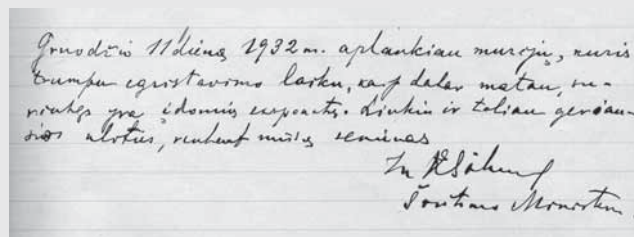 Gruodžio 11 dieną 1932 m. aplankiau muzėjų, kuris
trumpu egzistavimo laiku, kaip dabar matau, su-
rinkęs yra įdomių exponatų. Linkiu ir toliau geriau-
sios kloties, renkant mūsų senienas
Švietimo Ministeris